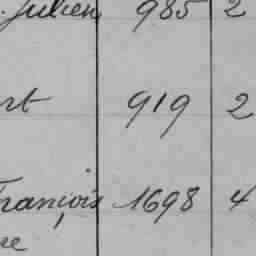 Julien 985 2
rt 919 2
François 1698 4
re